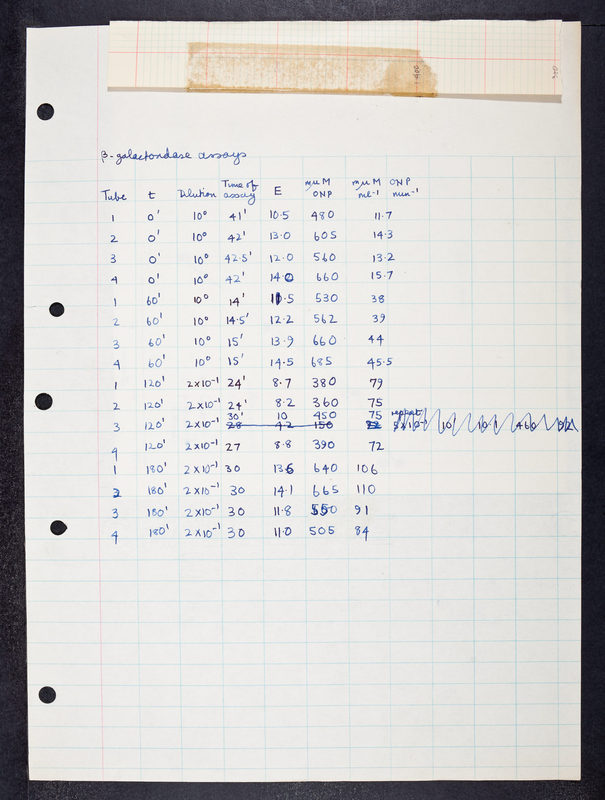 β-galactosidase assays
Tube t Dilution Time of assay E mµM ONP mµM ONP ml⁻¹ min⁻¹
1 0' 10° 41' 10.5 480 11.7
2 0' 10° 42' 13.0 605 14.3
3 0' 10° 42.5' 12.0 560 13.2
4 0' 10° 42' 14.0 660 15.7
1 60' 10° 14' 11.5 530 38
2 60' 10° 14.5' 12.2 562 39
3 60' 10° 15' 13.9 660 44
4 60' 10° 15' 14.5 685 45.5
1 120' 2x10⁻¹ 24' 8.7 380 79
2 120' 2x10⁻¹ 24' 8.2 360 75
30' 10 450 75 repeat
3 120' 2x10⁻¹ 28 4.2 150 10' 10.1 460 92
4 120' 2x10⁻¹ 27 8.8 390 72
1 180' 2x10⁻¹ 30 13.6 640 106
2 180' 2x10⁻¹ 30 14.1 665 110
3 180' 2x10⁻¹ 30 11.8 550 91
4 180' 2x10⁻¹ 30 11.0 505 84